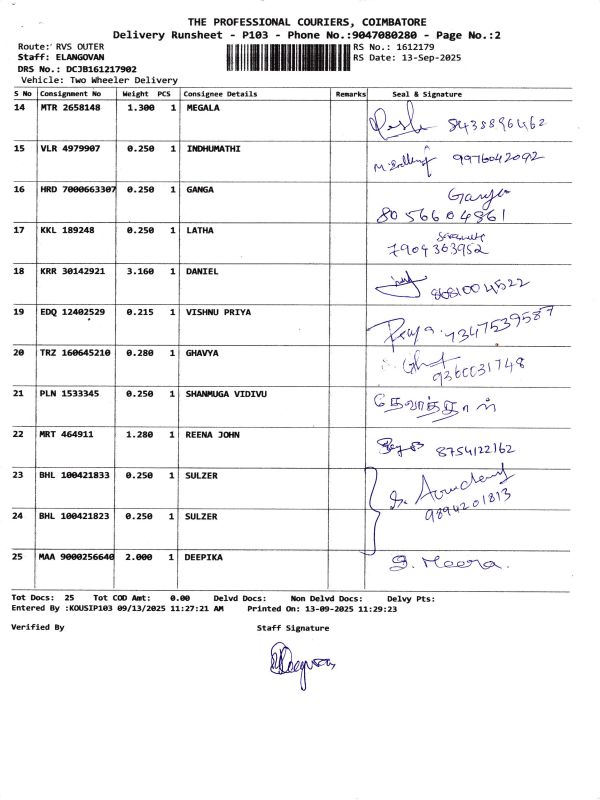 THE PROFESSIONAL COURIERS, COIMBATORE
Delivery Runsheet - P103 - Phone No.:9047080280 - Page No.:2
Route: RVS OUTER RS No.: 1612179
Staff: ELANGOVAN RS Date: 13-Sep-2025
DRS No.: DCJB161217902
Vehicle: Two Wheeler Delivery
S No Consignment No Weight PCS Consignee Details Remarks Seal & Signature
14 MTR 2658148 1.300 1 MEGALA
8435896462
15 VLR 4979907 0.250 1 INDHUMATHI
9976042092
16 HRD 7000663307 0.250 1 GANGA Ganga
8056604861
17 KKL 189248 0.250 1 LATHA
7904363952
18 KRR 30142921 3.160 1 DANIEL
8681004522
19 EDQ 12402529 0.215 1 VISHNU PRIYA
Priya. 7347539587
20 TRZ 160645210 0.280 1 GHAVYA
9360031748
21 PLN 1533345 0.250 1 SHANMUGA VIDIVU
22 MRT 464911 1.280 1 REENA JOHN
8754122162
23 BHL 100421833 0.250 1 SULZER
9894201813
24 BHL 100421823 0.250 1 SULZER
25 MAA 9000256640 2.000 1 DEEPIKA
D. Meera.
Tot Docs: 25 Tot COD Amt: 0.00 Delvd Docs: Non Delvd Docs: Delvy Pts:
Entered By :KOUSIP103 09/13/2025 11:27:21 AM Printed On: 13-09-2025 11:29:23
Verified By Staff Signature